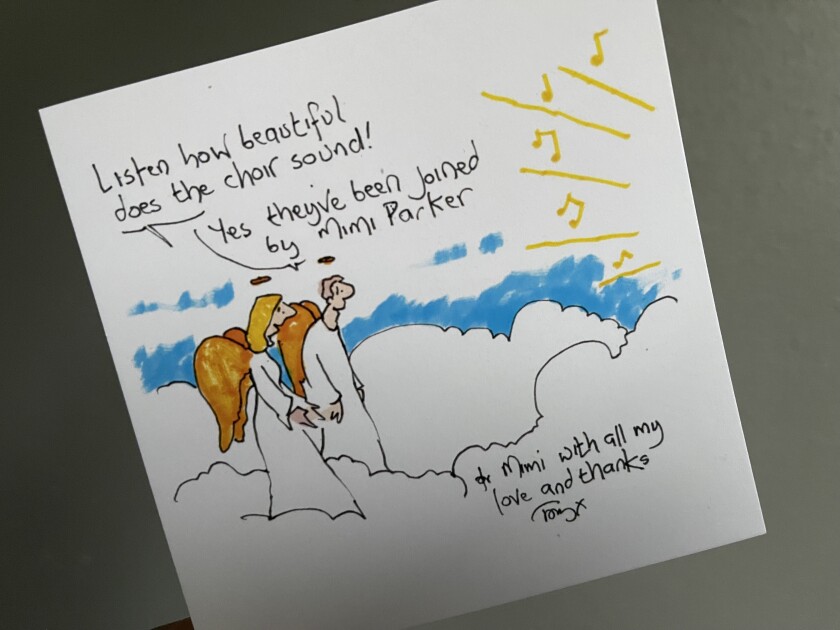 Listen how beautiful
does the choir sound!
Yes they've been joined
by Mimi Parker
for Mimi with all my
love and thanks
Tony x